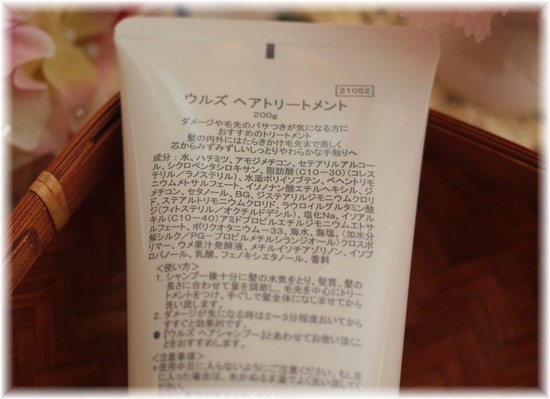 21052
ウルズ ヘアトリートメント
200g
ダメージや毛先のパサつきが気になる方に
おすすめのトリートメント
髪の内外にはたらきかけ毛先まで美しく
芯からみずみずしいしっとりやわらかな手触りへ
成分：水、ハチミツ、アモジメチコン、セテアリルアルコー
ル、シクロペンタシロキサン、脂肪酸(C10-30)(コレス
テリル/ラノステリル)、水添ポリイソブテン、ベヘントリモ
ニウムメトサルフェート、イソノナン酸エチルヘキシル、ジ
メチコン、セタノール、BG、ジステアリルジモニウムクロリ
ド、ステアルトリモニウムクロリド、ラウロイルグルタミン酸
ジ(フィトステリル/オクチルドデシル)、塩化Na、イソアル
キル(C10-40)アミドプロピルエチルジモニウムエトサ
ルフェート、ポリクオタニウム-33、海水、海塩、(加水分
解シルク/PG-プロピルメチルシランジオール)クロスポ
リマー、ウメ果汁発酵液、メチルイソチアゾリノン、イソプ
ロパノール、乳酸、フェノキシエタノール、香料
<使い方>
1. シャンプー後十分に髪の水気をとり、髪質、髪の
長さに合わせて量を調節し、毛先を中心にトリー
トメントをつけ、手ぐしで髪全体になじませてから
洗い流します。
2. ダメージが気になる時は2～3分程度おいてから
すすぐと効果的です。
●『ウルズ ヘアシャンプー』とあわせてお使い頂くこ
とをおすすめします。
<注意事項>
・使用中目に入らないようにご注意ください。もし目
に入った場合は、水かぬるま湯でよく洗い流してく